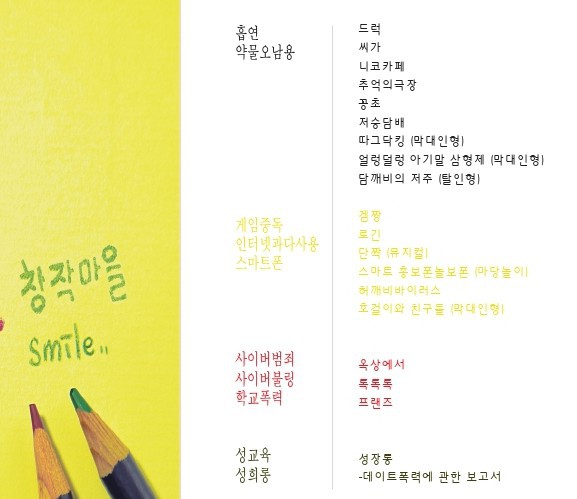 창작마을
smile..
흡연
약물오남용
드럭
씨가
니코카페
추억의극장
꽁초
저승담배
따그닥킹 (막대인형)
얼렁덜렁 아기말 삼형제 (막대인형)
담깨비의 저주 (탈인형)
게임중독
인터넷과다사용
스마트폰
겜짱
로긴
단짝 (뮤지컬)
스마트 흥보폰놀보폰 (마당놀이)
허깨비바이러스
호걸이와 친구들 (막대인형)
사이버범죄
사이버불링
학교폭력
옥상에서
톡톡톡
프랜즈
성교육
성희롱
성장통
-데이트폭력에 관한 보고서